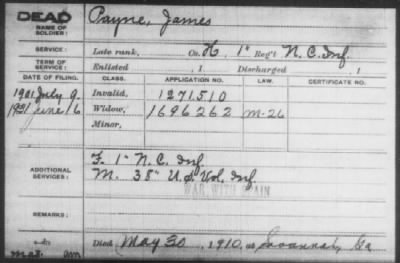 DEAD
NAME OF SOLDIER:
Payne, James
SERVICE:
Late rank, Co. H, 1" Reg't N.C. Inf.
TERM OF SERVICE:
Enlisted , 1 Discharged , 1
DATE OF FILING. CLASS. APPLICATION NO. LAW. CERTIFICATE NO.
1901 July 9. Invalid, 1271510
1921 June 16 Widow, 1696262 M-26
Minor,
ADDITIONAL SERVICES:
F. 1" N.C. Inf.
M. 38" U.S. Vol. Inf.
WAR WITH SPAIN
REMARKS:
Died May 30, 1910, at Savannah, Ga